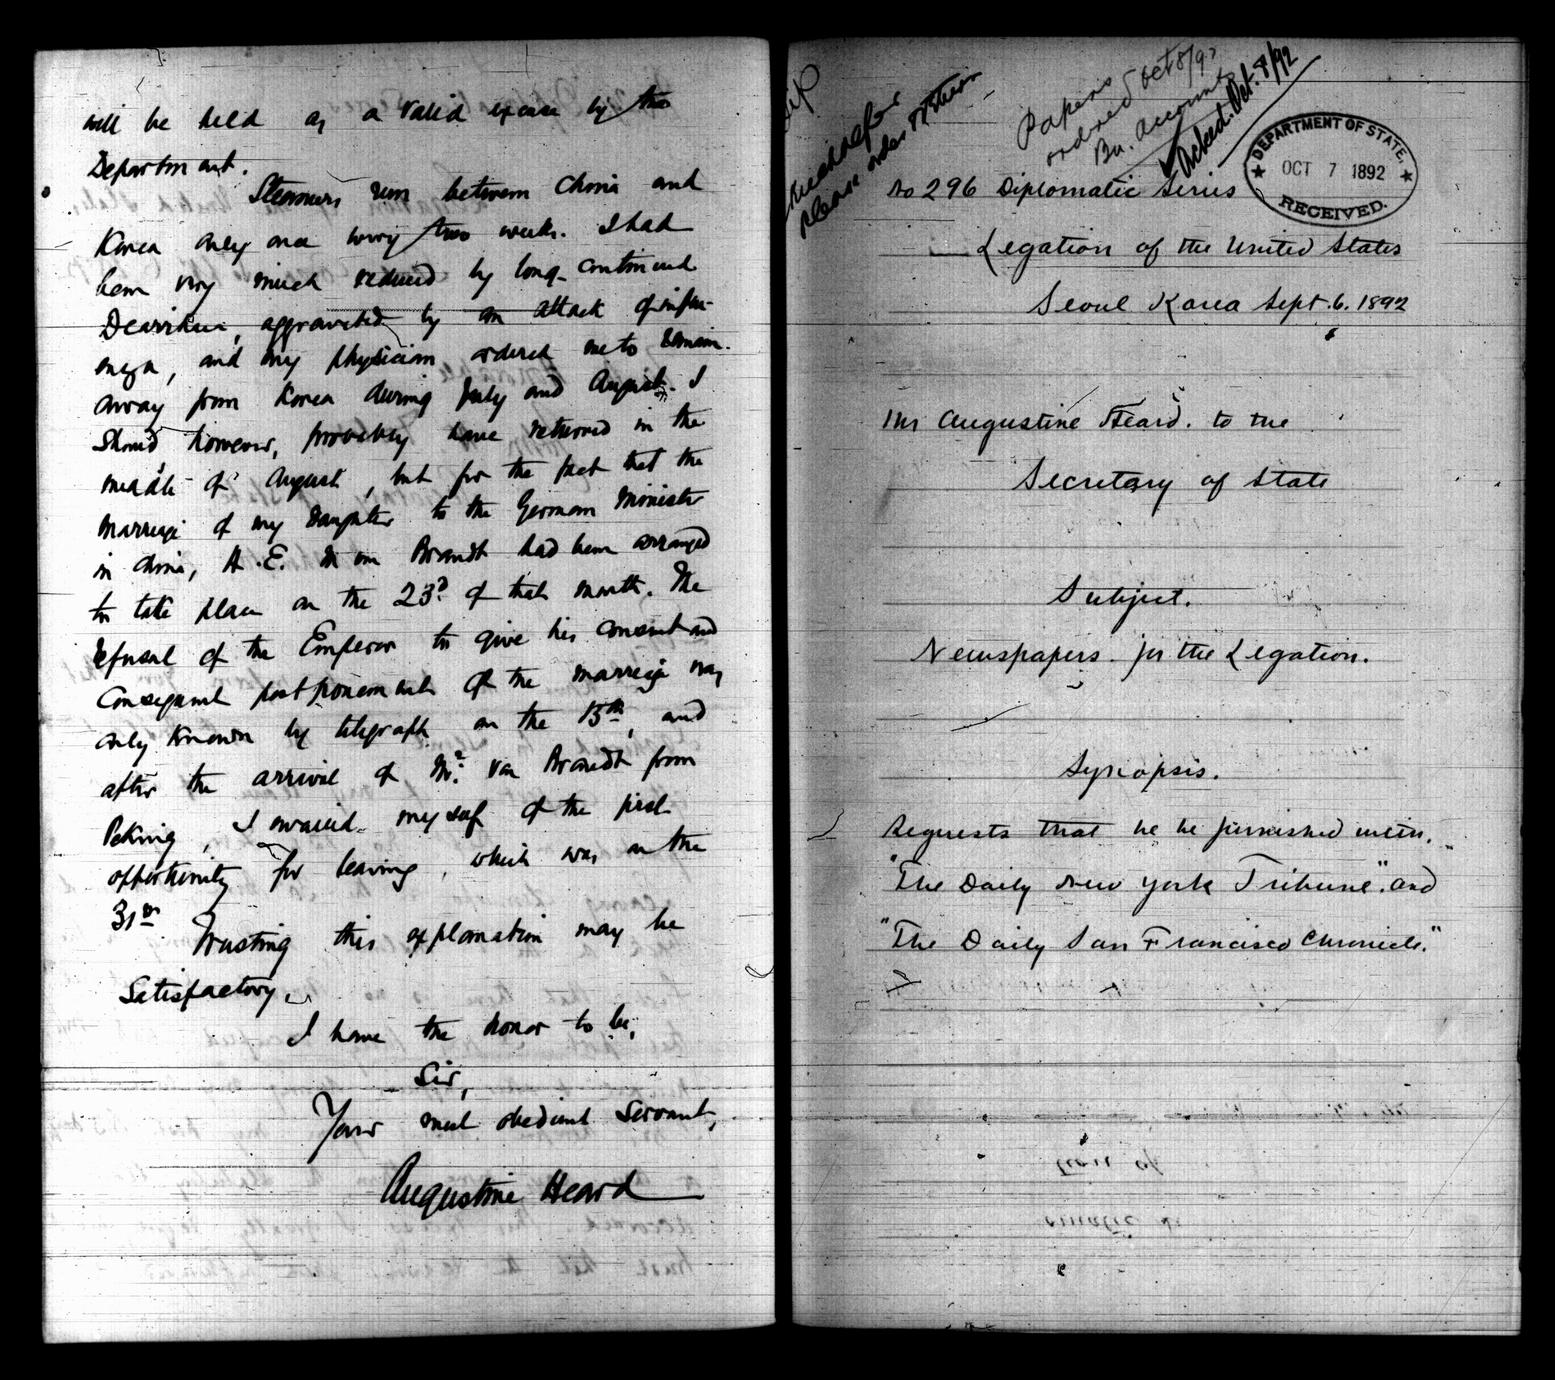 will be held as a valid excuse by the
Department.
Steamers run between China and
Korea only once every two weeks. I had
been very much reduced by long-continued
Diarrhœa, aggravated by an attack of influ-
enza, and my physician ordered me to remain
away from Korea during July and August. I
should however, probably have returned in the
middle of August, but for the fact that the
marriage of my daughter to the German Minister
in China, H.E. M von Brandt had been arranged
to take place on the 23d of that month. The
refusal of the Emperor to give his consent and
consequent postponement of the marriage was
only known by telegraph on the 15th, and
after the arrival of Mr. von Brandt from
Peking, I availed myself of the first
opportunity for leaving, which was on the
31st
Trusting this explanation may be
Satisfactory,
I have the honor to be,
Sir,
Your most obedient Servant,
Augustine Heard
Dip
please order them
Papers
ordered Oct 8/92
Bu. Accounts
Ackd. Oct. 8/92
DEPARTMENT OF STATE,
OCT 7 1892
RECEIVED.
No 296 Diplomatic Series
Legation of the United States
Seoul Korea Sept. 6. 1892
Mr Augustine Heard. to the
Secretary of State
Subject.
Newspapers for the Legation.
Synopsis.
Requests that he be furnished with,
"The Daily New York Tribune". and
"The Daily San Francisco Chronicle."